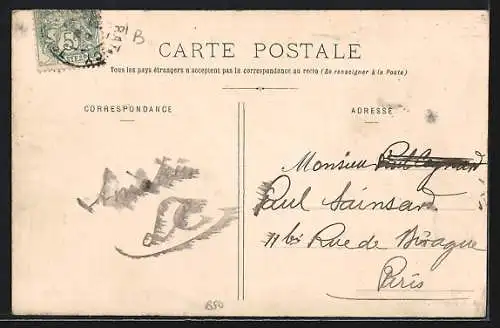 B
CARTE POSTALE
Tous les pays étrangers n'acceptent pas la correspondance au recto (Se renseigner à la Poste)
CORRESPONDANCE
ADRESSE
Monsieur Paul
Paul Sainsard
11 bis Rue de Birague
Paris
B50